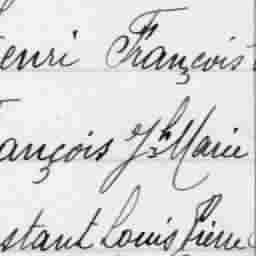 enri François
ançois Jh Marie
stant Louis Pierre